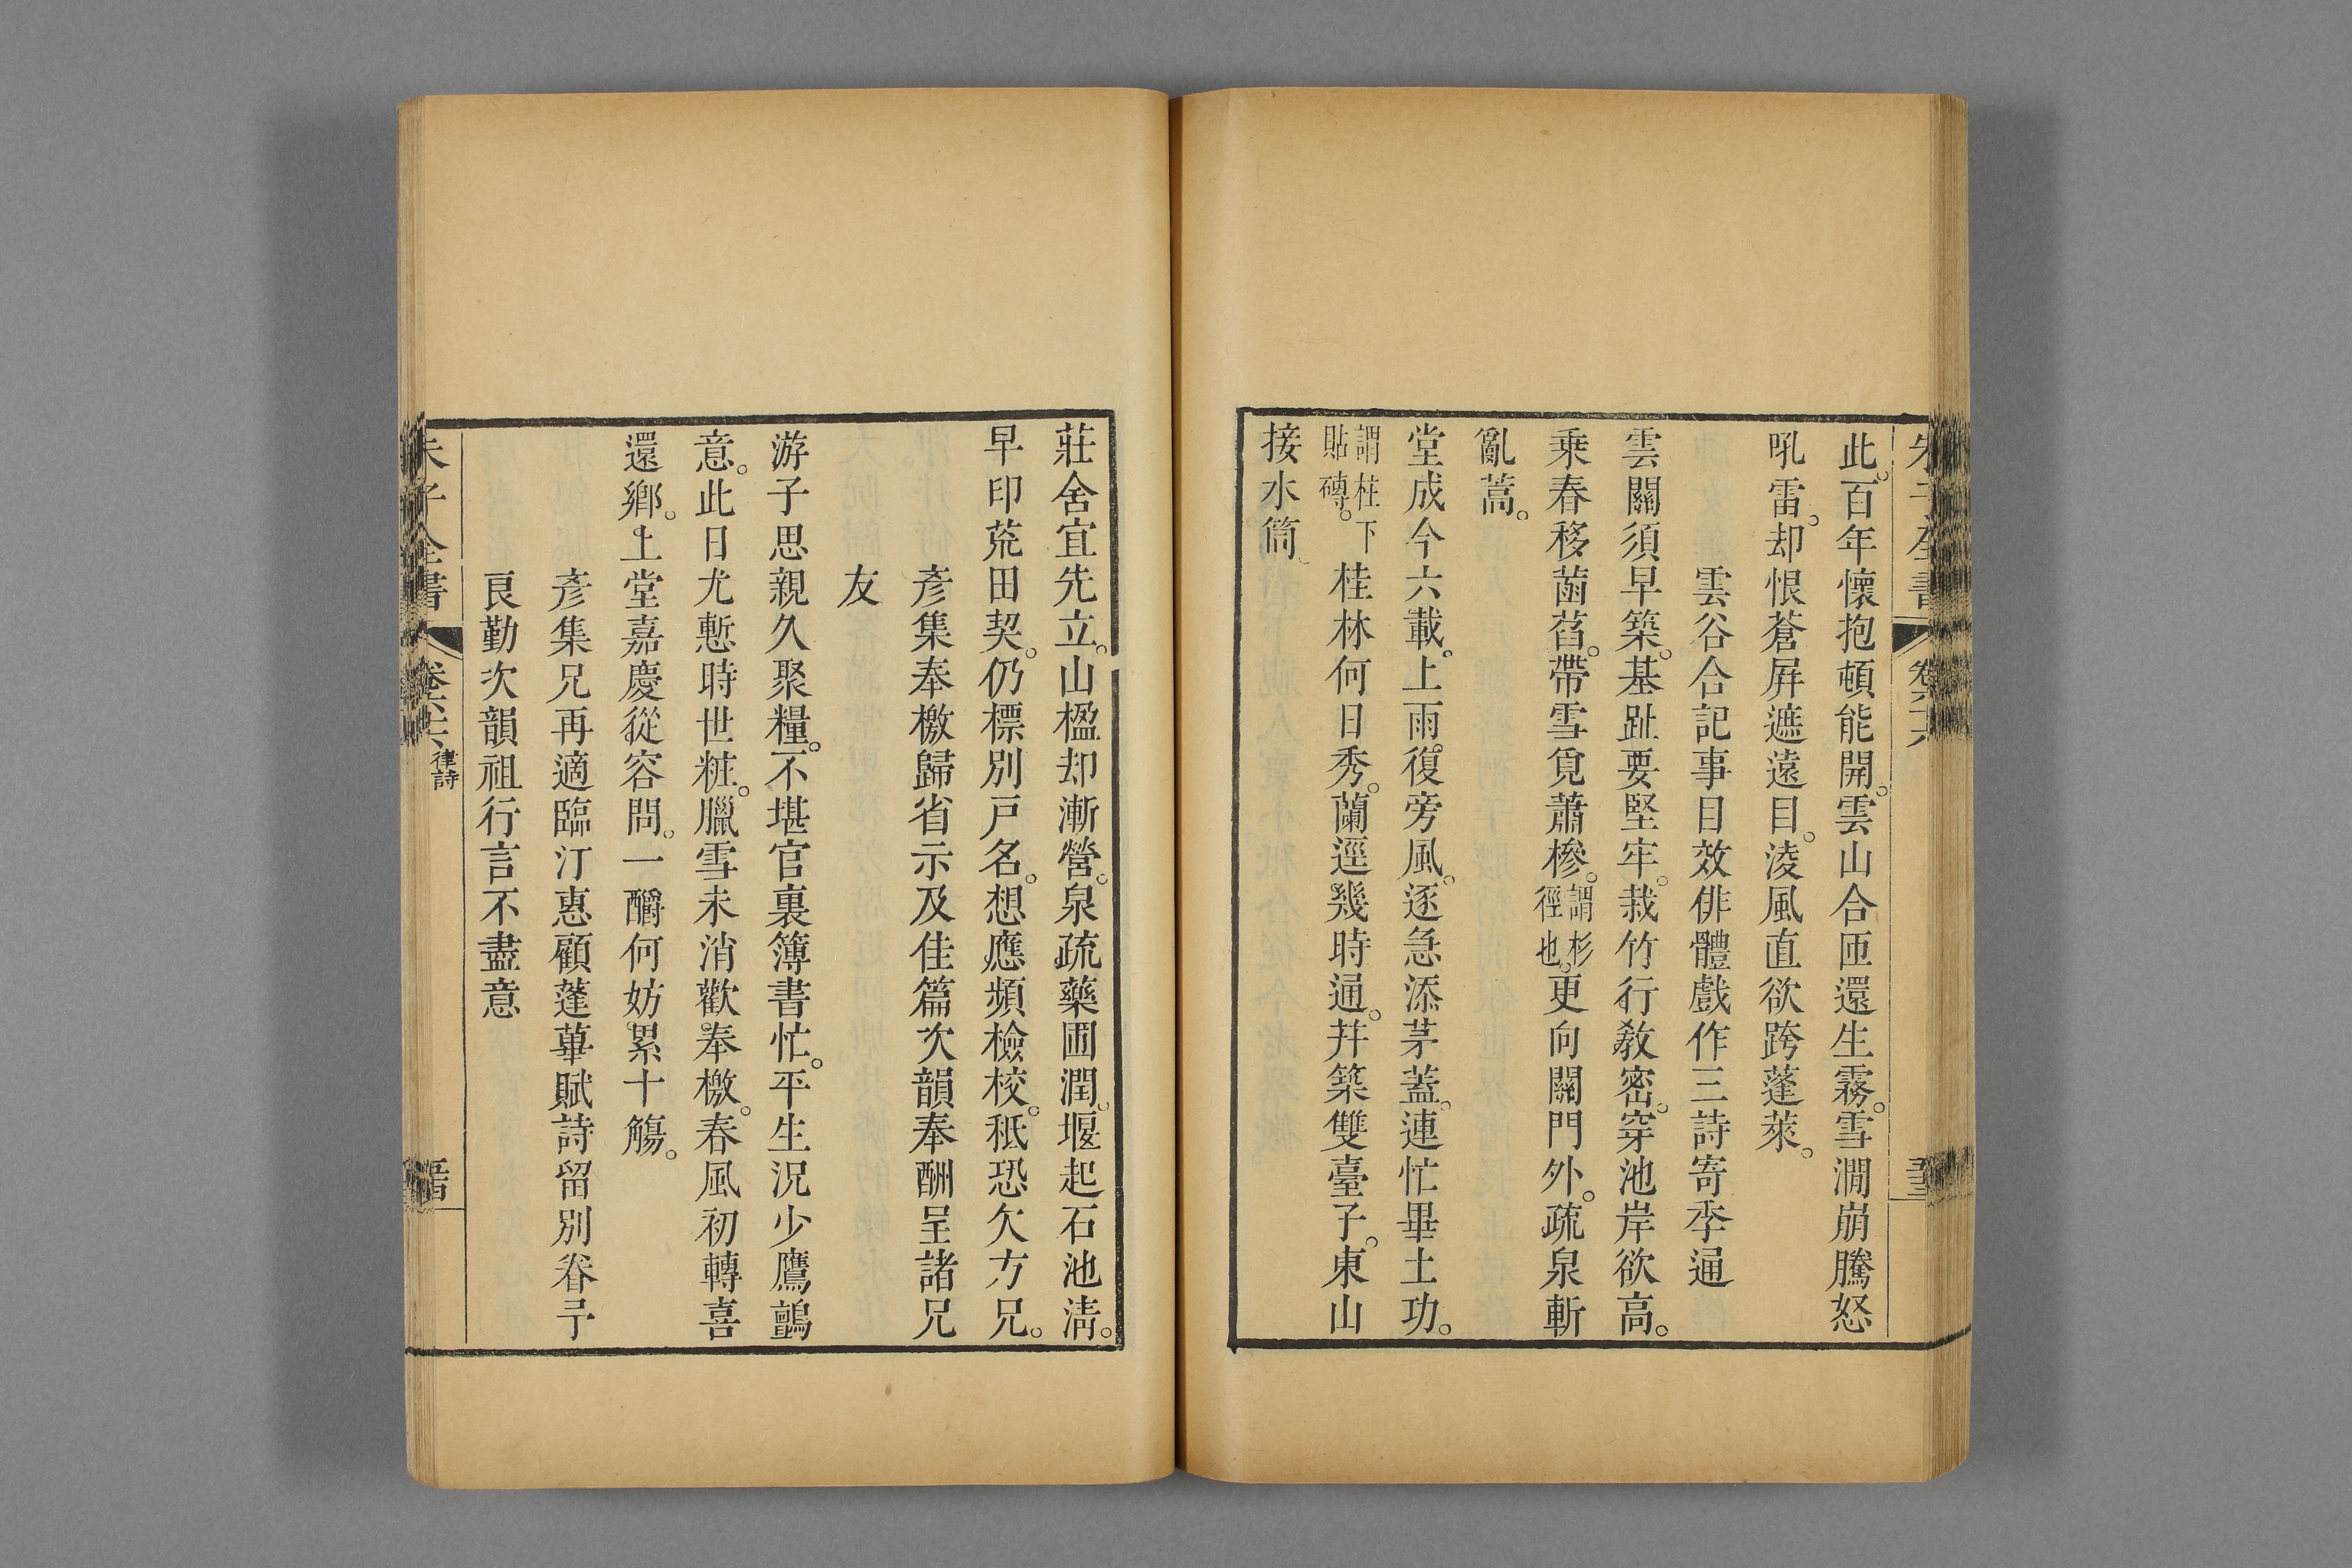 此。百年懷抱頓能開。雲山合匝還生霧。雪澗崩騰怒
吼雷。却恨蒼屏遮遠目。淩風直欲跨蓬萊。
雲谷合記事目效俳體戲作三詩寄季通
雲關須早築。基趾要堅牢。栽竹行教密。穿池岸欲高。
乘春移菡萏。帶雪覓蕭槮。謂杉徑也。更向關門外。疏泉斬
亂蒿。
堂成今六載。上雨復旁風。逐急添茅蓋。連忙畢土功。
謂柱下貼磚。桂林何日秀。蘭逕幾時通。幷築雙臺子。東山
接水筒。
莊舍宜先立。山楹却漸營。泉疏藥圃潤。堰起石池清。
早印荒田契。仍標別戸名。想應頻檢校。秪恐欠方兄。
彥集奉檄歸省示及佳篇次韻奉酬呈諸兄
友
游子思親久聚糧。不堪官裏簿書忙。平生況少鷹鸇
意。此日尤慙時世粧。臘雪未消歡奉檄。春風初轉喜
還鄉。上堂嘉慶從容問。一釂何妨累十觴。
彥集兄再適臨汀惠顧蓬蓽賦詩留別眷予
良勤次韻祖行言不盡意
朱子全書
卷六十六
律詩